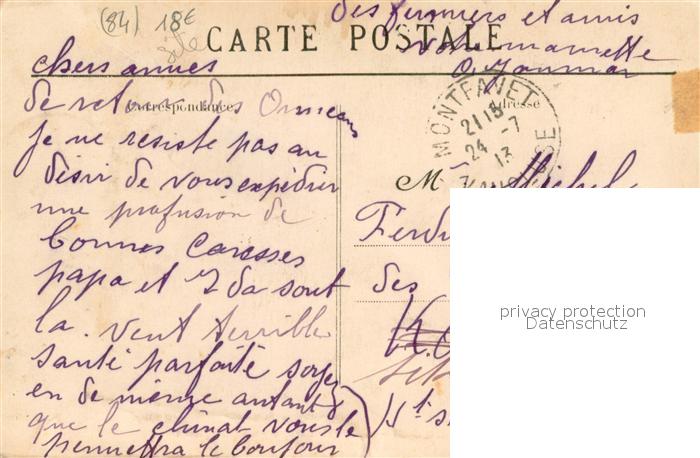 (84) 18€
des fermiers et amis
CARTE POSTALE
votre mamette
chers
Correspondance
Adresse
de retour des Ormeaux
je ne resiste pas au
désir de vous expédier
une profusion de
bonnes caresses
papa et Ida sont
la. vent terrible
santé parfaite soyez
en de même autant
que le climat vous le
permettra le bonjour
MONTFAVET
21 15
24 -7
13
M
Michel
Ferdi
des
privacy protection
Datenschutz